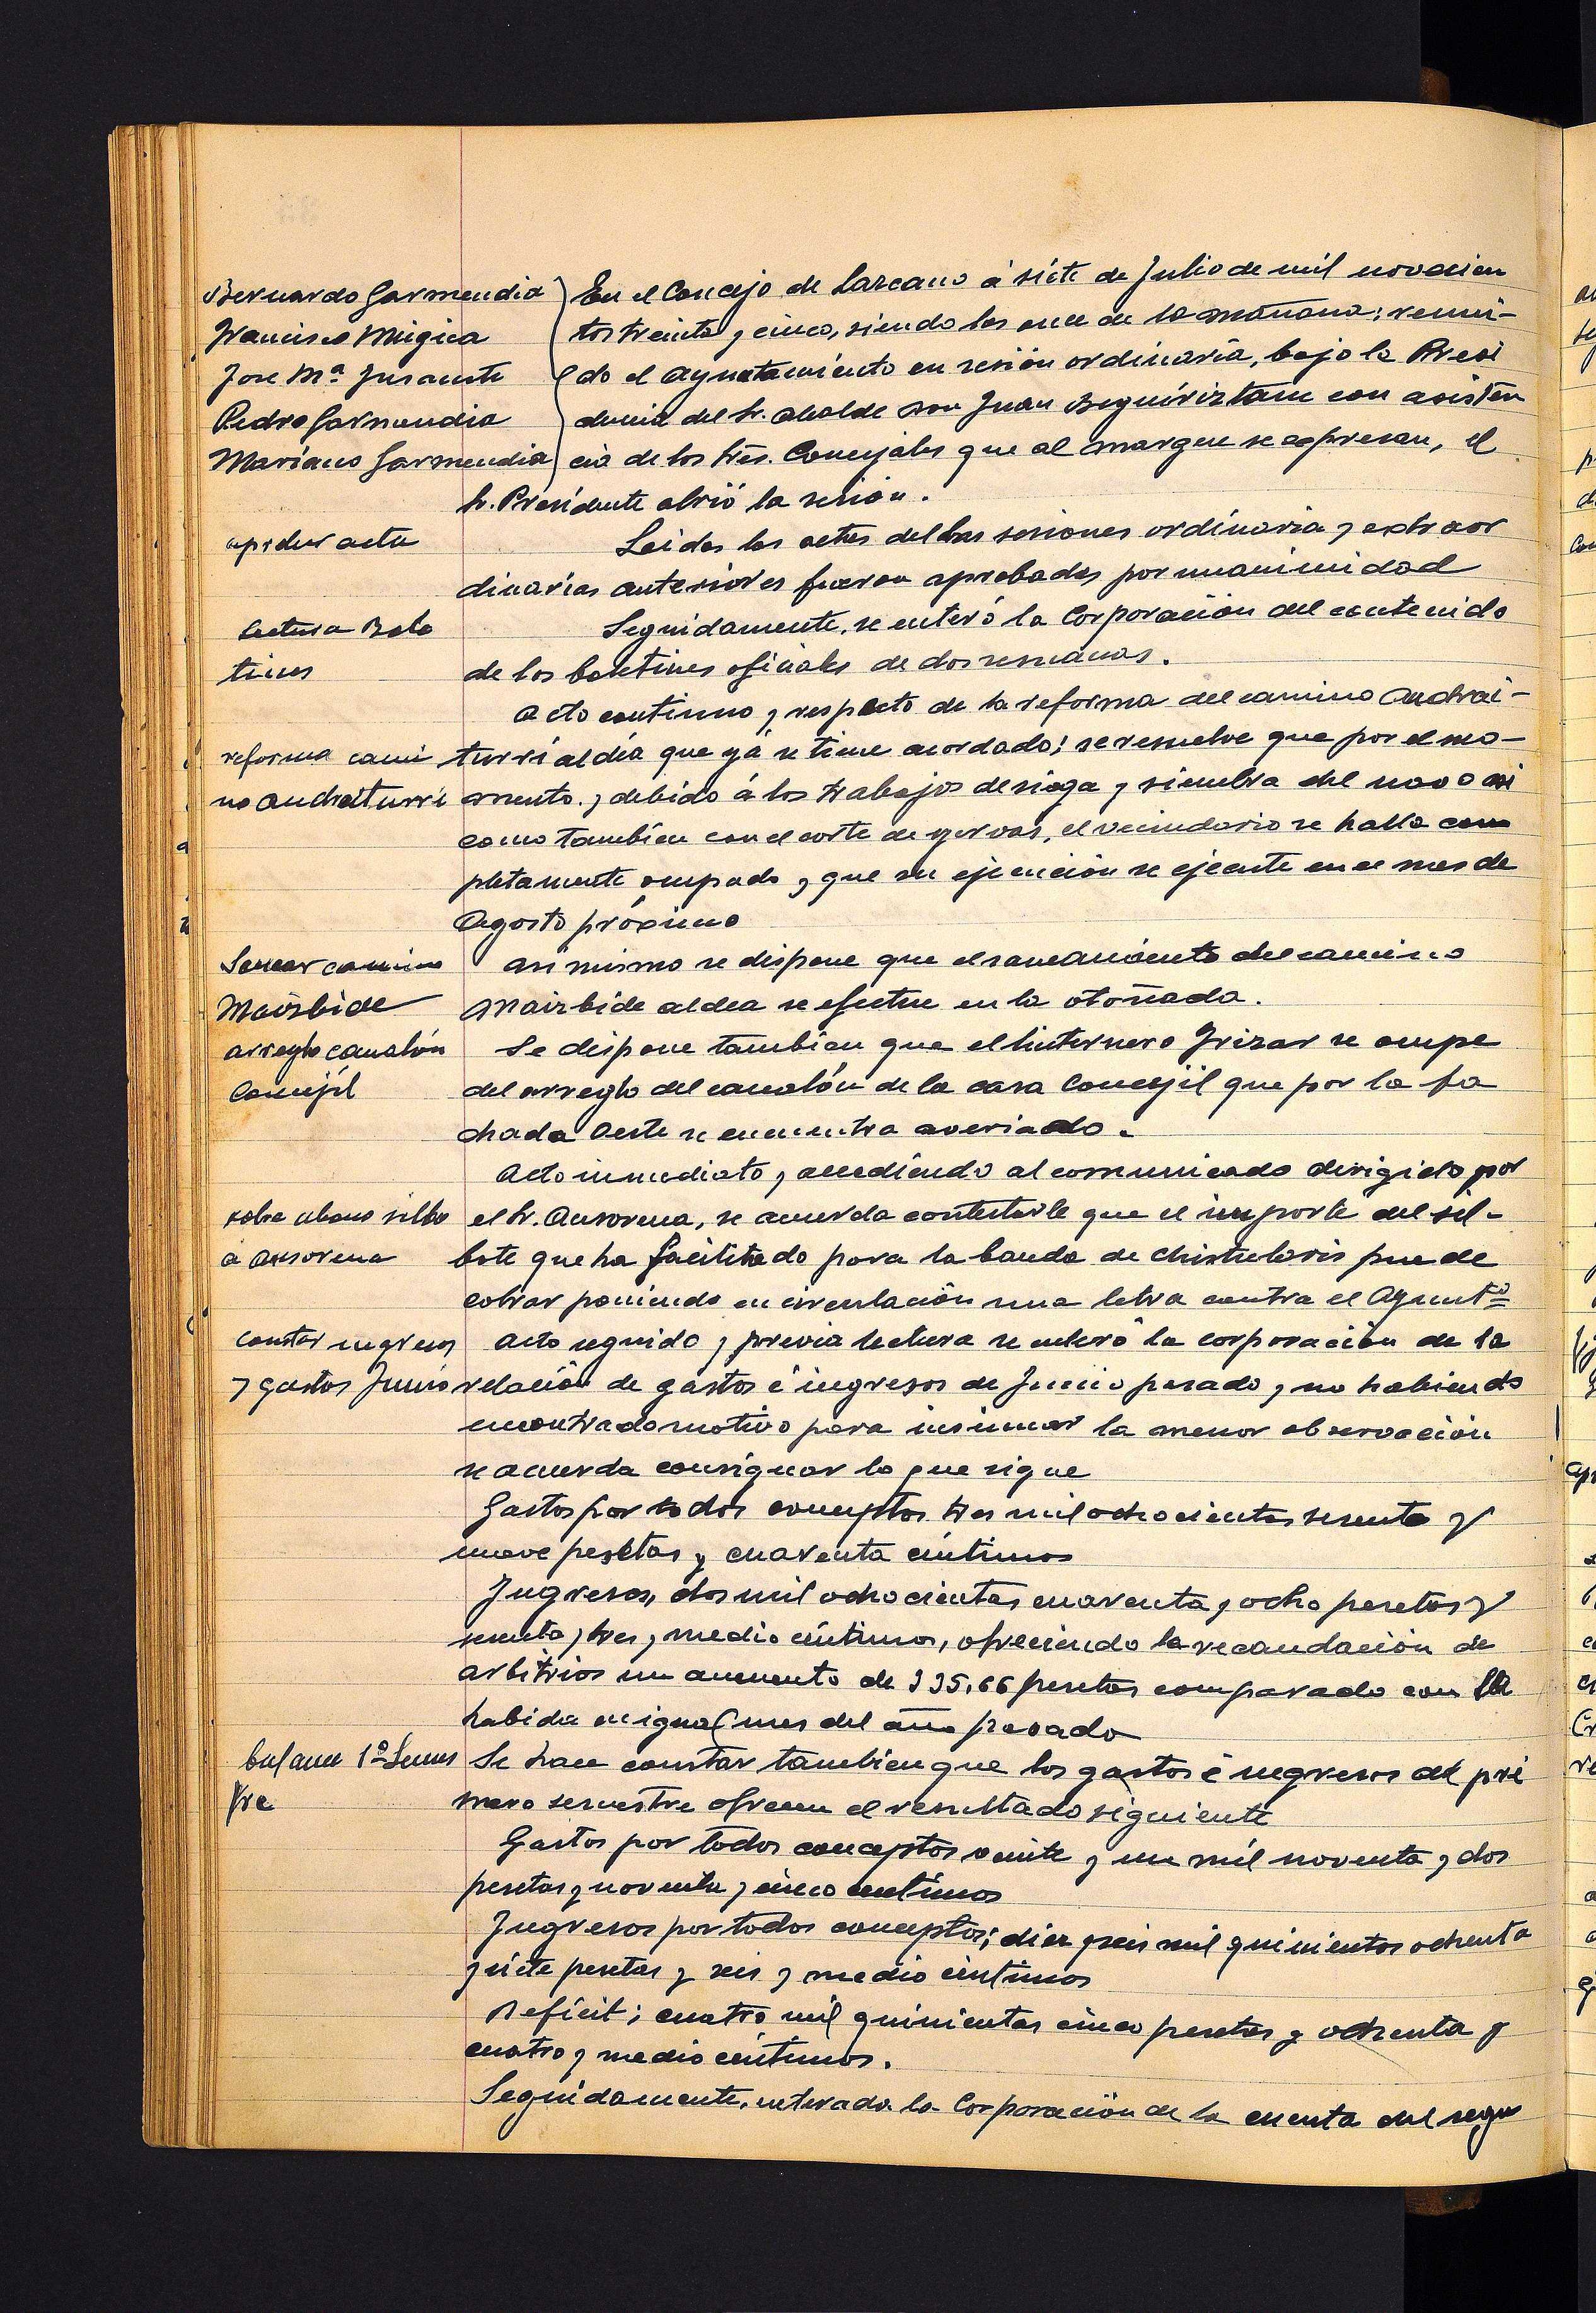 Bernardo Garmendia
Francisco Mugica
Jose Mª Insausti
Pedro Garmendia
Mariano Garmendia
En el Concejo de Lazcano á siete de Julio de mil novecien
tos treinta y cinco, siendo las once de la mañana; reuni-
do el Ayuntamiento en sesión ordinaria, bajo la Presi
dencia del Sr. Alcalde Don Juan Beguiriztain con asisten
cia de los Sres. Concejales que al margen se expresan, el
Sr. Presidente abrió la sesión.
aprobar acta
Leidas las actas de las sesiones ordinaria y extraor
dinarias anteriores fueron aprobadas por unanimidad
Lectura Bole
tines
Seguidamente, se enteró la Corporación del contenido
de los boletines oficiales de dos semanas.
reforma cami
no Andraiturri
Acto continuo y respecto de la reforma del camino Andrai-
turri aldea que yá se tiene acordado; se resuelve que por el mo-
mento y debido á los trabajos de siega y siembra del nabo asi
como tambien con el corte de yervas, el vecindario se halla com
pletamente ocupado y que su ejecución se ejecute en el mes de
Agosto próximo
Sanear camino
Mairbide
Asi mismo se dispone que el saneamiento del camino
Mairbide aldea se efectue en la otoñada.
arreglo canalón
Concejil
Se dispone tambien que el linternero Irizar se ocupe
del arreglo del canalón de la casa Concejil que por la fa
chada Oeste se encuentra averiado.
sobre abono silbo
á Ansorena
Acto inmediato y accediendo al comunicado dirigido por
el Sr. Ansorena, se acuerda contestarle que el importe del sil-
bote que ha facilitado para la banda de chistularis puede
cobrar poniendo en circulación una letra contra el Ayuntº
constar ingresos
y gastos Junio
Acto seguido y previa lectura se enteró la corporación de la
relación de gastos é ingresos de Junio pasado y no habiendo
encontrado motivo para insinuar la menor observación
se acuerda consignar lo que sigue
Gastos por todos conceptos tres mil ochocientas sesenta y
nueve pesetas y cuarenta céntimos
Ingresos, dos mil ochocientas cuarenta y ocho pesetas y
sesenta y tres y medio céntimos, ofreciendo la recaudación de
arbitrios un aumento de 335,66 pesetas comparado con la
habida en igual mes del año pasado
balance 1º Semes
tre
Se hace constar tambien que los gastos é ingresos del pri
mero semestre ofrecen el resultado siguiente
Gastos por todos conceptos veinte y un mil noventa y dos
pesetas y noventa y cinco centimos
Ingresos por todos conceptos; diez y seis mil quinientos ochenta
y siete pesetas y seis y medio céntimos
Deficit; cuatro mil quinientas cinco pesetas y ochenta y
cuatro y medio céntimos.
Seguidamente, enterada la Corporación de la cuenta del segun